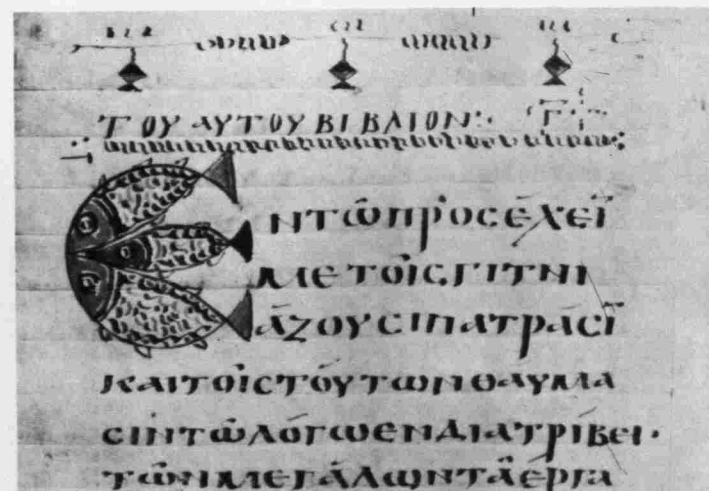 ΤΟΥ ΑΥΤΟΥ ΒΙΒΛΙΟΝ:· Γ
ΕΝΤῶΠΡὸϹΕΧΕΪ
ΜΕΤΟῖϹΓΙΤΝΙ
άΖΟΥϹΙΠΑΤΡάϹΪ
ΚΑΙΤΟῖϹΤΟύΤΩΝΘΑΥΜΑ
ϹΙΝΤῶΛόΓΩΕΝΔΙΑΤΡίΒΕΙ·
ΤῶΝΜΕΓάΛΩΝΤὰΕΡΓΑ